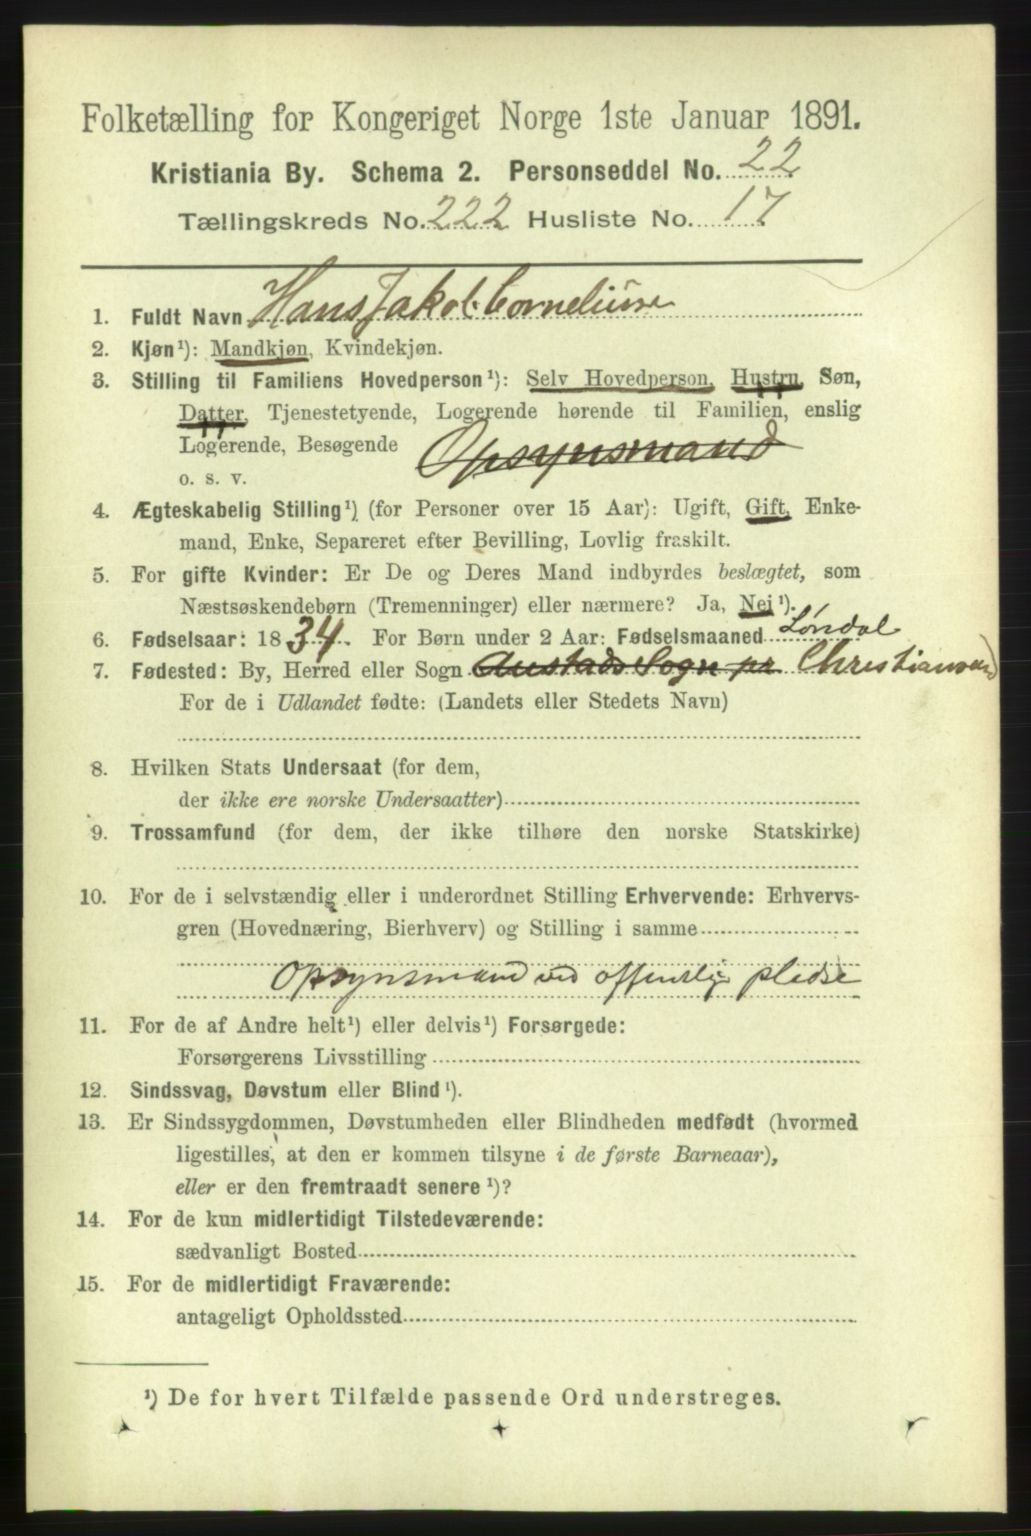 Folketælling for Kongeriget Norge 1ste Januar 1891.
Kristiania By. Schema 2. Personseddel No. 22
Tællingskreds No. 222 Husliste No. 17
1. Fuldt Navn Hans Jakob
2. Kjøn¹): Mandkjøn, Kvindekjøn.
3. Stilling til Familiens Hovedperson¹): Selv Hovedperson, Hustru, Søn,
Datter, Tjenestetyende, Logerende hørende til Familien, enslig
Logerende, Besøgende Opsynsmand
o. s. v.
4. Ægteskabelig Stilling¹) (for Personer over 15 Aar): Ugift, Gift, Enke-
mand, Enke, Separeret efter Bevilling, Lovlig fraskilt.
5. For gifte Kvinder: Er De og Deres Mand indbyrdes beslægtet, som
Næstsøskendebørn (Tremenninger) eller nærmere? Ja, Nej¹).
6. Fødselsaar: 1834. For Børn under 2 Aar: Fødselsmaaned
7. Fødested: By, Herred eller Sogn Austads Sogn pr Christiansand
For de i Udlandet fødte: (Landets eller Stedets Navn)
8. Hvilken Stats Undersaat (for dem,
der ikke ere norske Undersaatter)
9. Trossamfund (for dem, der ikke tilhøre den norske Statskirke)
10. For de i selvstændig eller i underordnet Stilling Erhvervende: Erhvervs-
gren (Hovednæring, Bierhverv) og Stilling i samme
Opsynsmand ved offentlig pladse
11. For de af Andre helt¹) eller delvis¹) Forsørgede:
Forsørgerens Livsstilling
12. Sindssvag, Døvstum eller Blind¹).
13. Er Sindssygdommen, Døvstumheden eller Blindheden medfødt (hvormed
ligestilles, at den er kommen tilsyne i de første Barneaar),
eller er den fremtraadt senere¹)?
14. For de kun midlertidigt Tilstedeværende:
sædvanligt Bosted
15. For de midlertidigt Fraværende:
antageligt Opholdssted
¹) De for hvert Tilfælde passende Ord understreges.